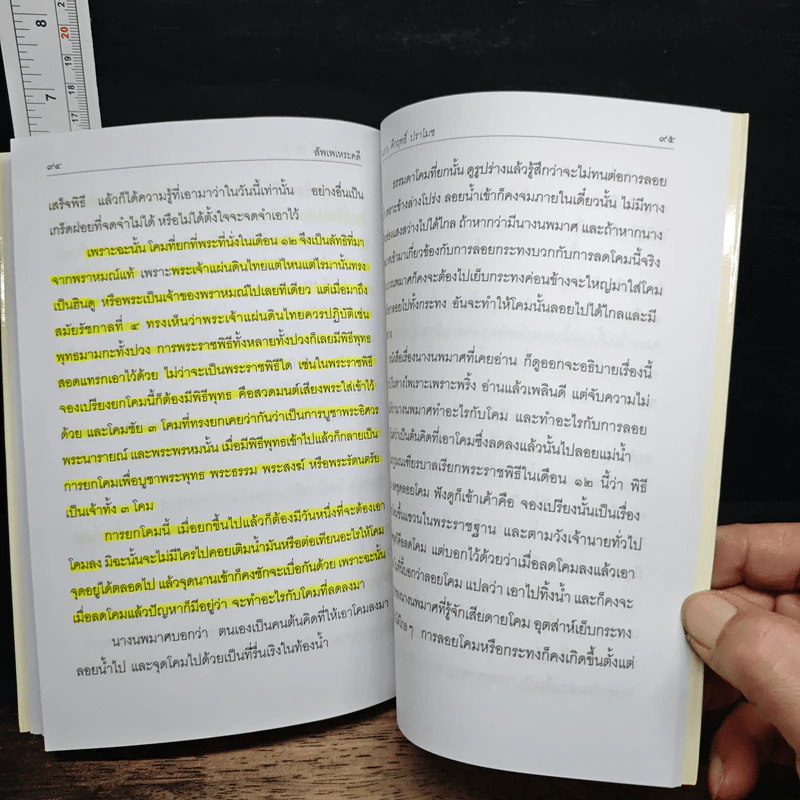 8
20
19
18
17
7
๙๔
สัพเพเหระคดี
เสร็จพิธี แล้วก็ได้ความรู้ที่เอามาว่าในวันนี้เท่านั้น อย่างอื่นเป็น
เกร็ดฝอยที่จดจำไม่ได้ หรือไม่ได้ตั้งใจจะจดจำเอาไว้
เพราะฉะนั้น โคมที่ยกที่พระที่นั่งในเดือน ๑๒ จึงเป็นลัทธิที่มา
จากพราหมณ์แท้ เพราะพระเจ้าแผ่นดินไทยแต่ไหนแต่ไรมานั้นทรง
เป็นฮินดู หรือพระเป็นเจ้าของพราหมณ์ไปเลยทีเดียว แต่เมื่อมาถึง
สมัยรัชกาลที่ ๔ ทรงเห็นว่าพระเจ้าแผ่นดินไทยควรปฏิบัติเช่น
พุทธมามกะทั้งปวง การพระราชพิธีทั้งหลายทั้งปวงก็เลยมีพิธีพุทธ
สอดแทรกเอาไว้ด้วย ไม่ว่าจะเป็นพระราชพิธีใด เช่นในพระราชพิธี
จองเปรียงยกโคมนี้ก็ต้องมีพิธีพุทธ คือสวดมนต์เสียงพระใส่เข้าไว้
ด้วย และโคมชัย ๓ โคมที่ทรงยกเคยว่ากันว่าเป็นการบูชาพระอิศวร
พระนารายณ์ และพระพรหมนั้น เมื่อมีพิธีพุทธเข้าไปแล้วก็กลายเป็น
การยกโคมเพื่อบูชาพระพุทธ พระธรรม พระสงฆ์ หรือพระรัตนตรัย
เป็นเจ้าทั้ง ๓ โคม
การยกโคมนี้ เมื่อยกขึ้นไปแล้วก็ต้องมีวันหนึ่งที่จะต้องเอา
โคมลง มิฉะนั้นจะไม่มีใครไปคอยเติมน้ำมันหรือต่อเทียนอะไรให้โคม
จุดอยู่ได้ตลอดไป แล้วจุดนานเข้าก็คงชักจะเบื่อกันด้วย เพราะฉะนั้น
เมื่อลดโคมแล้วปัญหาก็มีอยู่ว่า จะทำอะไรกับโคมที่ลดลงมา
นางนพมาศบอกว่า ตนเองเป็นคนต้นคิดที่ให้เอาโคมลงมา
ลอยน้ำไป และจุดโคมไปด้วยเป็นที่รื่นเริงในท้องน้ำ
คึกฤทธิ์ ปราโมช
๙๕
ธรรมดาโคมที่ยกนั้น ดูรูปร่างแล้วรู้สึกว่าจะไม่ทนต่อการลอย
เพราะข้างล่างโปร่ง ลอยน้ำเข้าก็คงจมภายในเดี๋ยวนั้น ไม่มีทาง
แสงสว่างไปได้ไกล ถ้าหากว่ามีนางนพมาศ และถ้าหากนาง
เข้ามาเกี่ยวข้องกับการลอยกระทงบวกกับการลดโคมนี้จริง
นพมาศก็คงจะต้องไปเย็บกระทงค่อนข้างจะใหญ่มาใส่โคม
ลอยไปทั้งกระทง อันจะทำให้โคมนั้นลอยไปได้ไกลและมี
หนังสือเรื่องนางนพมาศที่เคยอ่าน ก็ดูออกจะอธิบายเรื่องนี้
ทางไพเราะเพราะพริ้ง อ่านแล้วเพลินดี แต่จับความไม่
นางนพมาศทำอะไรกับโคม และทำอะไรกับการลอย
ว่าเป็นต้นคิดที่เอาโคมซึ่งลดลงแล้วนั้นไปลอยแม่น้ำ
กฎมณเฑียรบาลเรียกพระราชพิธีในเดือน ๑๒ นี้ว่า พิธี
ลดชุดลอยโคม ฟังดูก็เข้าเค้าคือ จองเปรียงนั้นเป็นเรื่อง
ขึ้นแขวนในพระราชฐาน และตามวังเจ้านายทั่วไป
คือลดโคม แต่บอกไว้ด้วยว่าเมื่อลดโคมลงแล้วเอา
ที่บอกว่าลอยโคม แปลว่า เอาไปทิ้งน้ำ และก็คงจะ
นางนพมาศที่รู้จักเสียดายโคม อุตส่าห์เย็บกระทง
ได้ไกลๆ การลอยโคมหรือกระทงก็คงเกิดขึ้นตั้งแต่